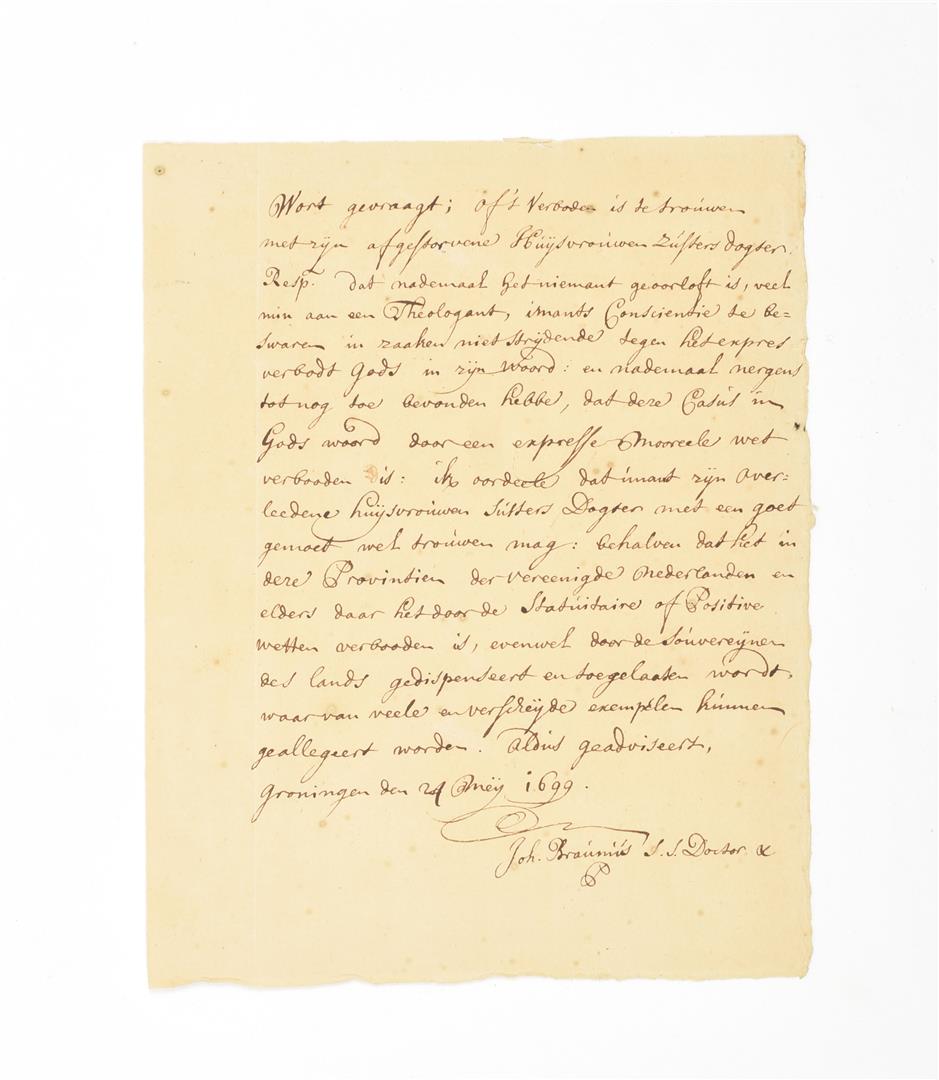 Wort gevraagt; of't Verboden is te trouwen
met zyn afgestorvene Huysvrouwen Zusters dogter.
Resp. dat nademaal het niemant geoorloft is, veel
min aan een Theologant, imants Conscientie te be=
swaren in zaaken niet strydende tegen het expres
verbodt Gods in zyn woord: en nademaal nergens
tot nog toe bevonden hebbe, dat deze Casus in
Gods woord door een expresse Moreele wet
verbooden is: ik oordeele dat imant zyn over-
leedene huysvrouwen susters Dogter met een goet
gemoet wel trouwen mag: behalven dat het in
deze Provintien der vereenigde Nederlanden en
elders daar het door de Statuitaire of Positive
wetten verbooden is, evenwel door de souvereynen
des lands gedispenseert en toegelaaten wordt,
waar van veele en verscheyde exempelen kunnen
geallegeert worden. Aldus geadviseert,
Groningen den 24 Meÿ 1699.
Joh. Braunius S. S. Doctor &
P